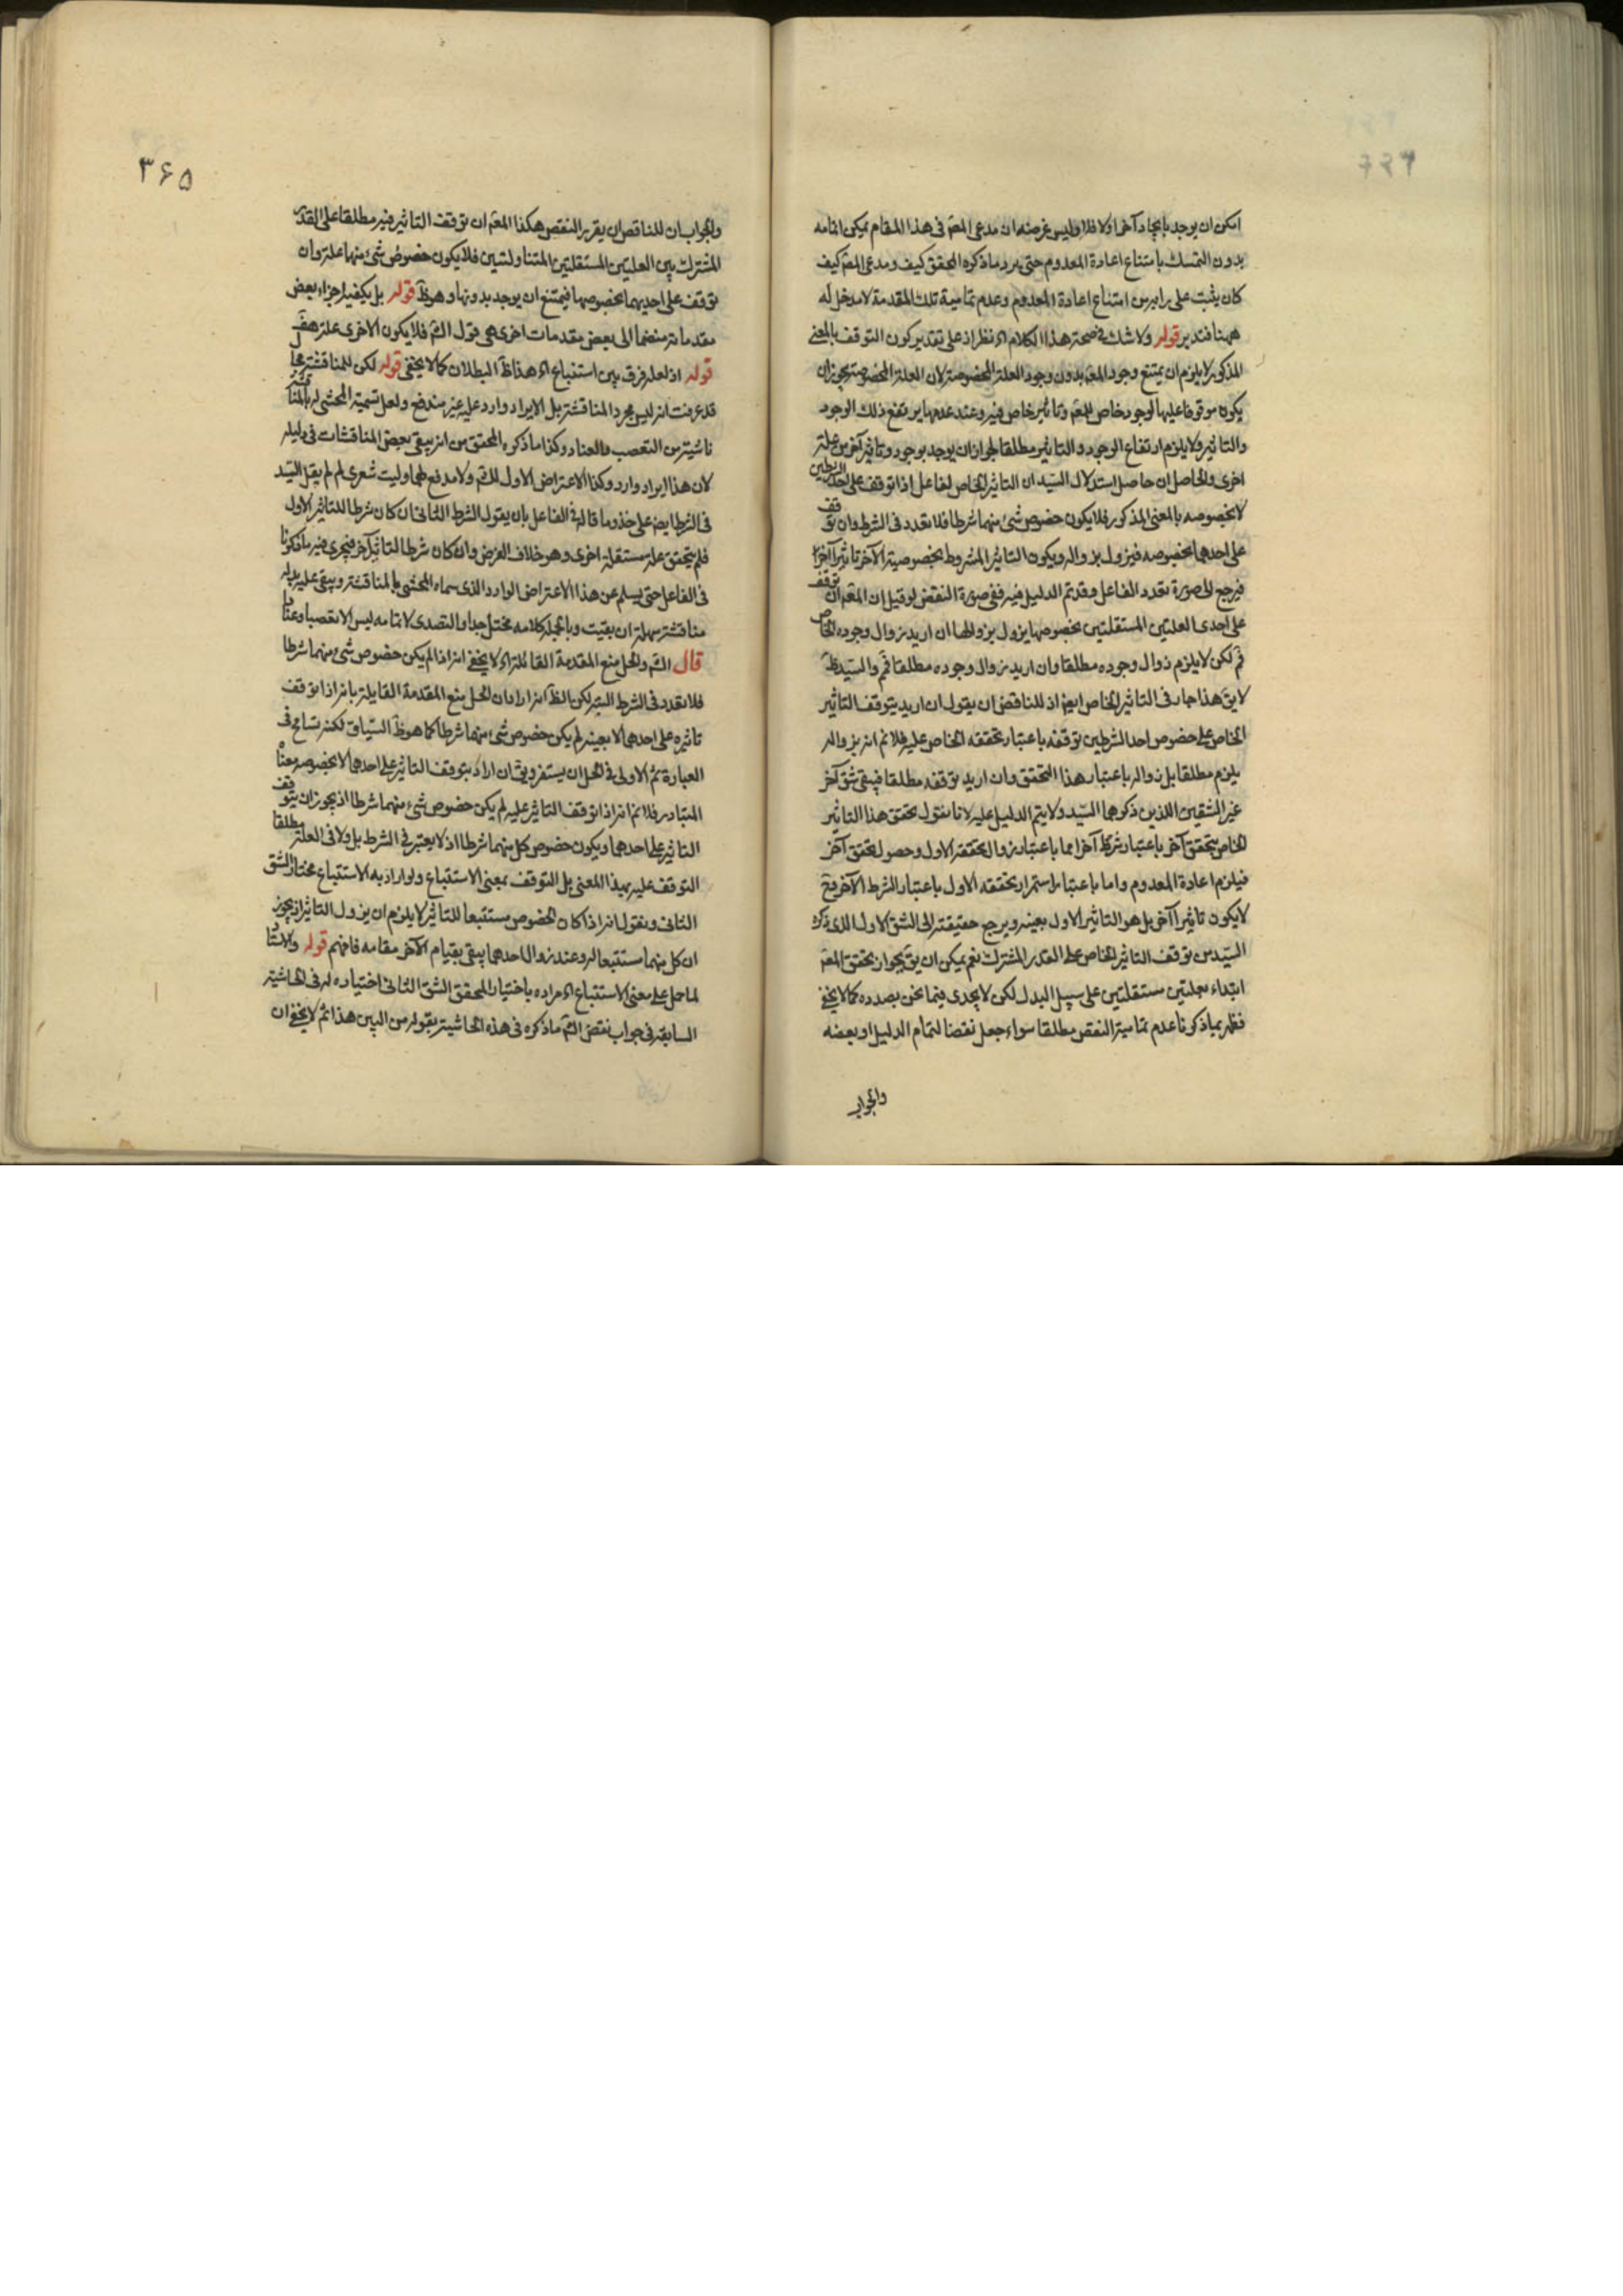 امكن ان يوجد بايجاد آخر اولا فلا وليس غرضه ان مدعى المعترض فى هذا المقام يمكن اتمامه
بدون التمسك بامتناع اعادة المعدوم حتى يرد ما ذكره المحقق كيف ومدعى المعـ كيف
كان يثبت على رايه من امتناع اعادة المعدوم وعدم تمامية تلك المقدمة لا مدخل له
ههنا فتدبر قوله ولا شك فى صحة هذا الكلام اه نظر اذ على تقدير كون التوقف بالمعنى
المذكور لا يلزم ان يمتنع وجود المعـ بدون وجود العلة المخصوصة لان العلة المخصوصة يجوز ان
يكون موقوفا عليها لوجود خاص للمعـ وتاثير خاص فيه وعند عدمها يرتفع ذلك الوجود
والتاثير ولا يلزم ارتفاع الوجود والتاثير مطلقا لجواز ان يوجد بوجود وتاثير آخر من علة
اخرى والحاصل ان حاصل استدلال السيد ان التاثير الخاص لفاعل اذا توقف على احد الشرطين
لا بخصوصه بالمعنى المذكور فلا يكون خصوص شئ منهما شرطا فلا تعدد فى الشرط وان توقف
على احدهما بخصوصه فيزول بزواله ويكون التاثير المشروط بخصوصية الآخر تاثيرا آخر
فيرجع الى صورة تعدد الفاعل وقد تم الدليل فيه ففى صورة النقض لو قيل ان المعـ ان توقف
على احدى العلتين المستقلتين بخصوصها يزول بزوالها ان اريد زوال وجوده الخاص
فم لكن لا يلزم زوال وجوده مطلقا وان اريد زوال وجوده مطلقا فم والسيد
لا يق هذا جار فى التاثير الخاص ايضا اذ للناقض ان يقول ان اريد بتوقف التاثير
الخاص على خصوص احد الشرطين توقفه باعتبار تحققه الخاص عليه فلا نم انه بزواله
يلزم مطلقا بل زواله باعتبار هذا التحقق وان اريد توقفه مطلقا فيبقى شق آخر
غير الشقين اللذين ذكرهما السيد ولا يتم الدليل عليه لانا نقول تحقق هذا التاثير
الخاص بتحقق آخر باعتبار شرط آخر اما باعتبار زوال تحققه الاول وحصول تحقق آخر
فيلزم اعادة المعدوم واما باعتبار استمرار تحققه الاول باعتبار الشرط الآخر فح
لا يكون تاثيرا آخر بل هو التاثير الاول بعينه ويرجع حقيقته الى الشق الاول الذى ذكره
السيد من توقف التاثير الخاص على القدر المشترك نعم يمكن ان يق بجواز تحقق المعـ
ابتداء بعلتين مستقلتين على سبيل البدل لكن لا يجدى فيما نحن بصدده كما لا يخفى
فظهر بما ذكرنا عدم تمامية النقض مطلقا سواء جعل نقضا لتمام الدليل او بعضه
والجواب
۳۶۵
والجواب ان للناقض ان يقرر النقض هكذا المعـ ان توقف التاثير فيه مطلقا على القدر
المشترك بين العلتين المستقلتين المتناولتين فلا يكون خصوص شئ منهما علة وان
توقف على احديهما بخصوصها فيمتنع ان يوجد بدونها وهو ظ قوله بل يكفيه اجزاء بعض
مقدماته منضما الى بعض مقدمات اخرى هى قول الش فلا يكون الاخرى علة هف
قوله اذ لعله فرق بين استتباع اه هذا ظ البطلان كما لا يخفى قوله لكن للمناقشة مجال
قد عرفت انه ليس مجرد المناقشة بل الايراد وارد عليه غير مندفع ولعل تسمية المحشى له بالمناقشة
ناشية من التعصب والعناد وكذا ما ذكره المحقق من انه يبقى بعض المناقشات فى دليله
لان هذا ايراد وارد وكذا الاعتراض الاول للش ولا مدفع لهما وليت شعرى لم لم يقل السيد
فى الشرط ايضا على حذو ما قاله فى الفاعل بان يقول الشرط الثانى ان كان شرطا للتاثير الاول
فلم يتحقق علة مستقلة اخرى وهو خلاف الفرض وان كان شرطا لتاثير آخر فيجرى فيه ما ذكرنا
فى الفاعل حتى يسلم عن هذا الاعتراض الوارد الذى سماه المحشى بالمناقشة ويبقى عليه بدله
مناقشة سهلة ان بقيت وبالجملة كلامه مختل جدا والتصدى لاتمامه ليس الا تعصبا وعنادا
قال الش والحل منع المقدمة القائلة اه لا يخفى انه اذا لم يكن خصوص شئ منهما شرطا
فلا تعدد فى الشرط البتة لكن الظ انه اراد ان الحل منع المقدمة القايلة بانه اذا توقف
تاثيره على احدهما لا بعينه لم يكن خصوص شئ منهما شرطا كما هو ظ السياق لكنه تسامح فى
العبارة ثم الاولى فى الحل ان يستفسر ويق ان اراد بتوقف التاثير على احدهما لا بخصوصه معناه
المتبادر فلا نم انه اذا توقف التاثير عليه لم يكن خصوص شئ منهما شرطا اذ يجوز ان يتوقف
التاثير على احدهما ويكون خصوص كل منهما شرطا اذ لا يعتبر فى الشرط بل ولا فى العلة مطلقا
التوقف عليه بهذا المعنى بل التوقف بمعنى الاستتباع ولو اراد به الاستتباع مختار الشق
الثانى ونقول انه اذا كان الخصوص مستتبعا للتاثير لا يلزم ان يزول التاثير اذ يجوز
ان كل منهما مستتبعا له وعند زوال احدهما يبقى بقيام الآخر مقامه فافهم قوله والاستاد
لما حمل على معنى الاستتباع اه مراده باختيار المحقق الشق الثانى اختياره له فى الحاشية
السابقة فى جواب نقض الش ما ذكره فى هذه الحاشية بقوله من البين هذا ثم لا يخفى ان